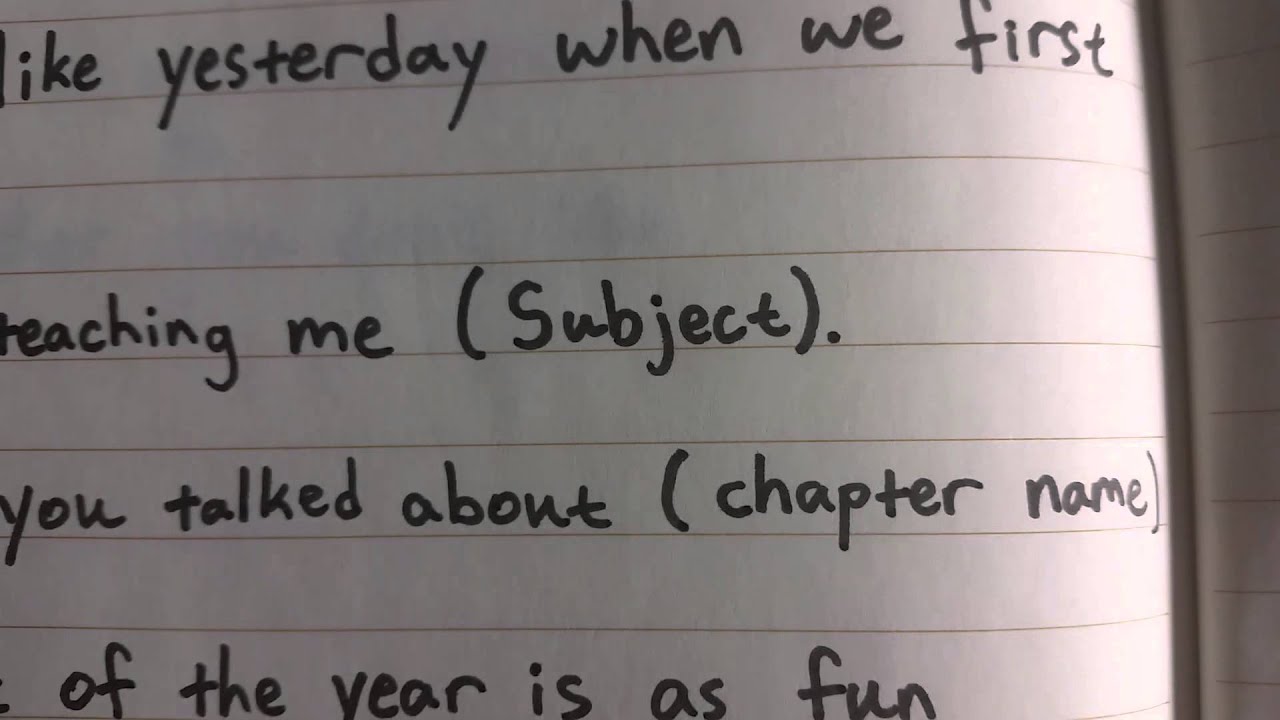 like yesterday when we first
teaching me (Subject).
you talked about (chapter name)
of the year is as fun